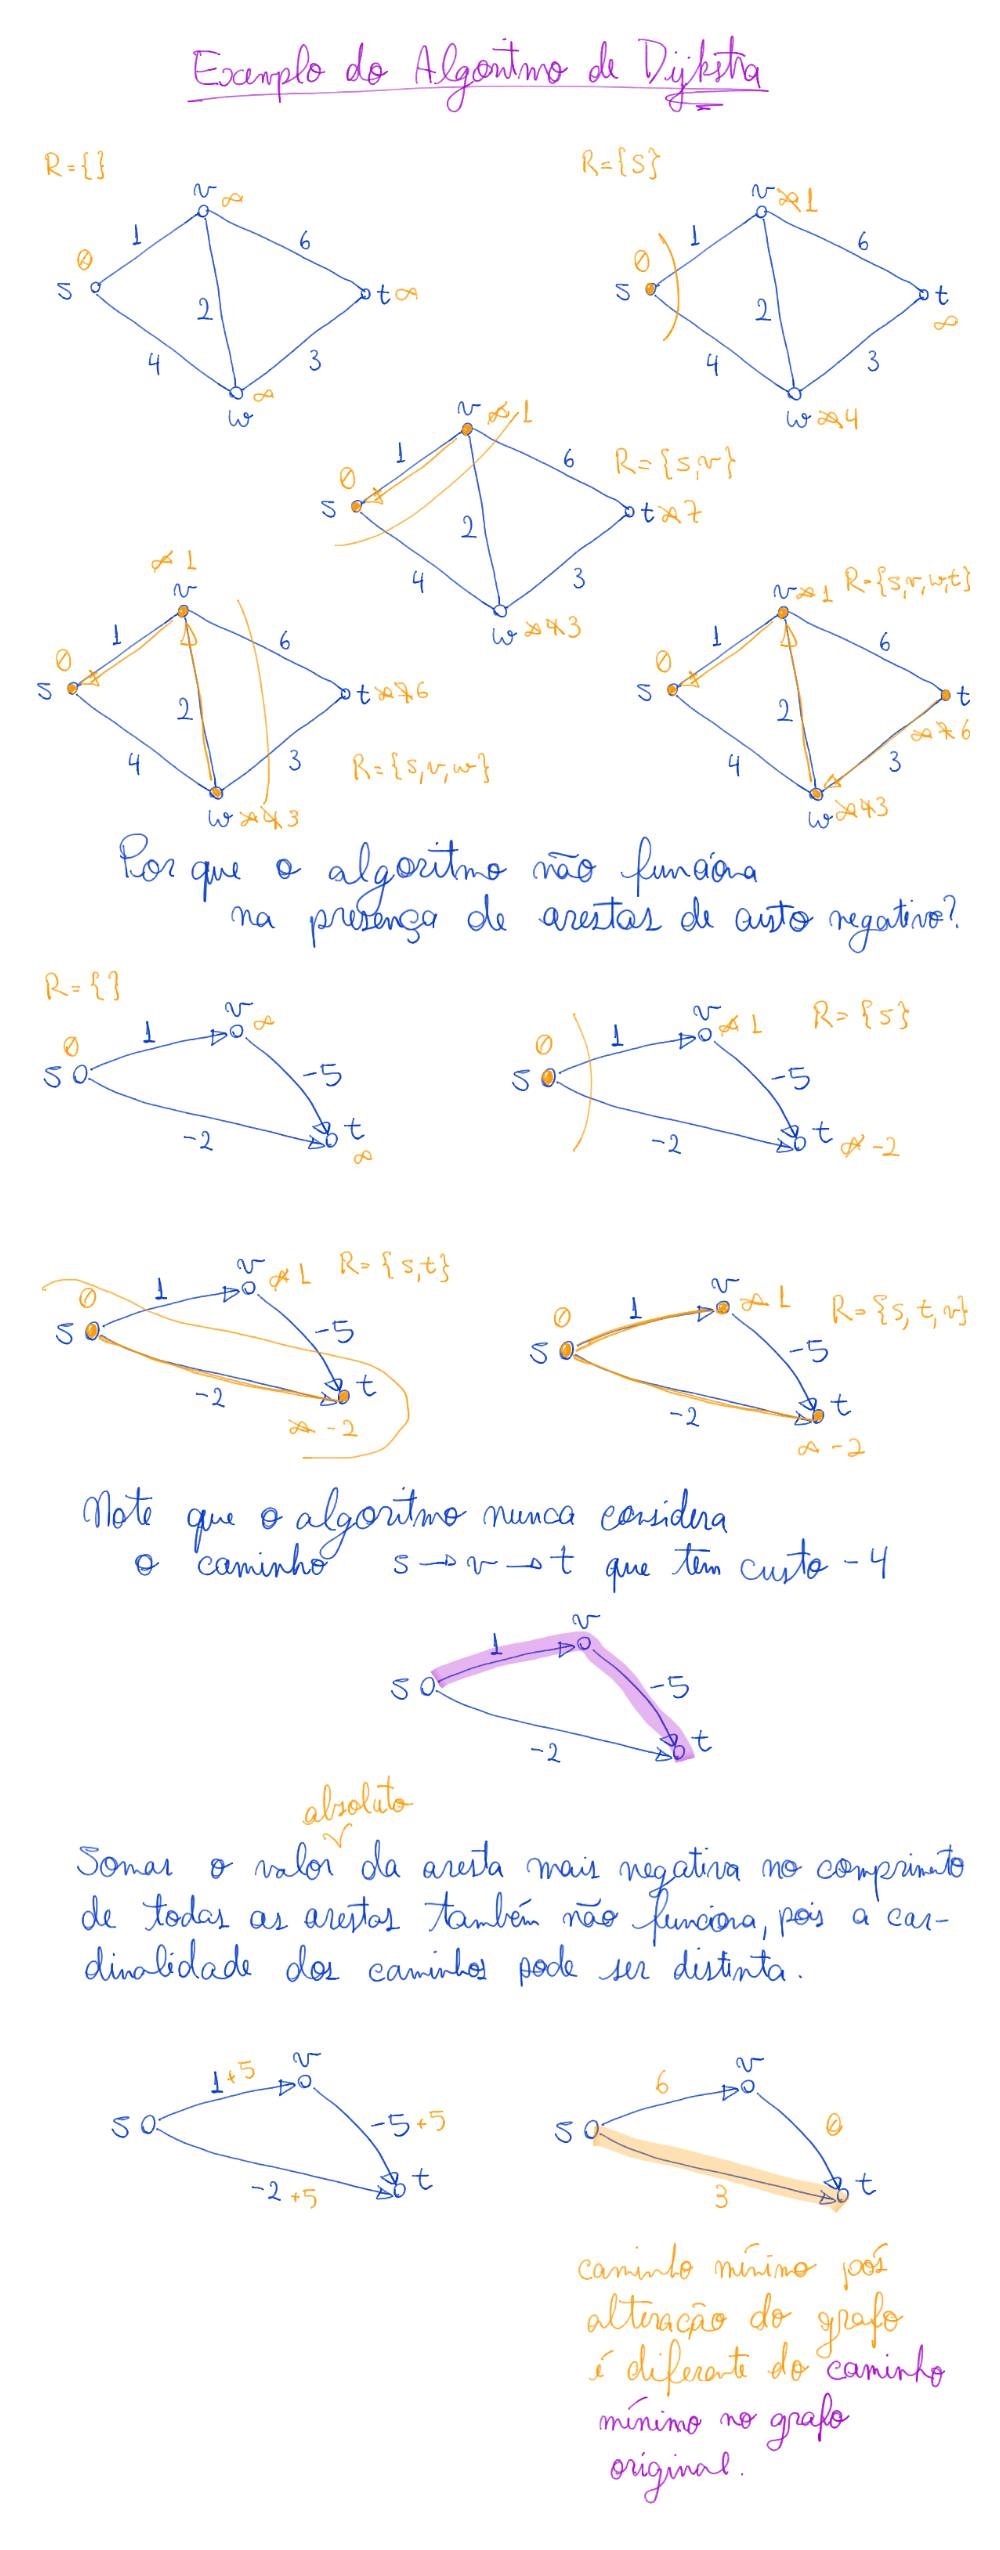 Exemplo do Algoritmo de Dijkstra
R={}
v ∞
1
6
0
s
2
t ∞
4
3
∞
w
R={s}
v ∞ 1
1
6
0
s
2
t
∞
4
3
w ∞ 4
v ∞ 1
1
6
R={s,v}
0
s
2
t ∞ 7
4
3
w ∞ 4 3
∞ 1
v
1
6
0
s
2
t ∞ 7 6
4
3
R={s,v,w}
w ∞ 4 3
v ∞ 1
R={s,v,w,t}
1
6
0
s
2
t
∞ 7 6
4
3
w ∞ 4 3
Por que o algoritmo não funciona
na presença de arestas de custo negativo?
R={}
v
∞
1
0
s
-5
-2
t
∞
v
∞ 1
R={s}
1
0
s
-5
-2
t
∞ -2
v
∞ 1
R={s,t}
1
0
s
-5
-2
t
∞ -2
v
∞ 1
R={s,t,v}
1
0
s
-5
-2
t
∞ -2
Note que o algoritmo nunca considera
o caminho s→v→t que tem custo -4
v
1
s
-5
-2
t
absoluto
Somar o valor da aresta mais negativa no comprimento
de todas as arestas também não funciona, pois a car-
dinalidade dos caminhos pode ser distinta.
v
1+5
s
-5+5
-2+5
t
v
6
s
0
3
t
caminho mínimo pós
alteração do grafo
é diferente do caminho
mínimo no grafo
original.